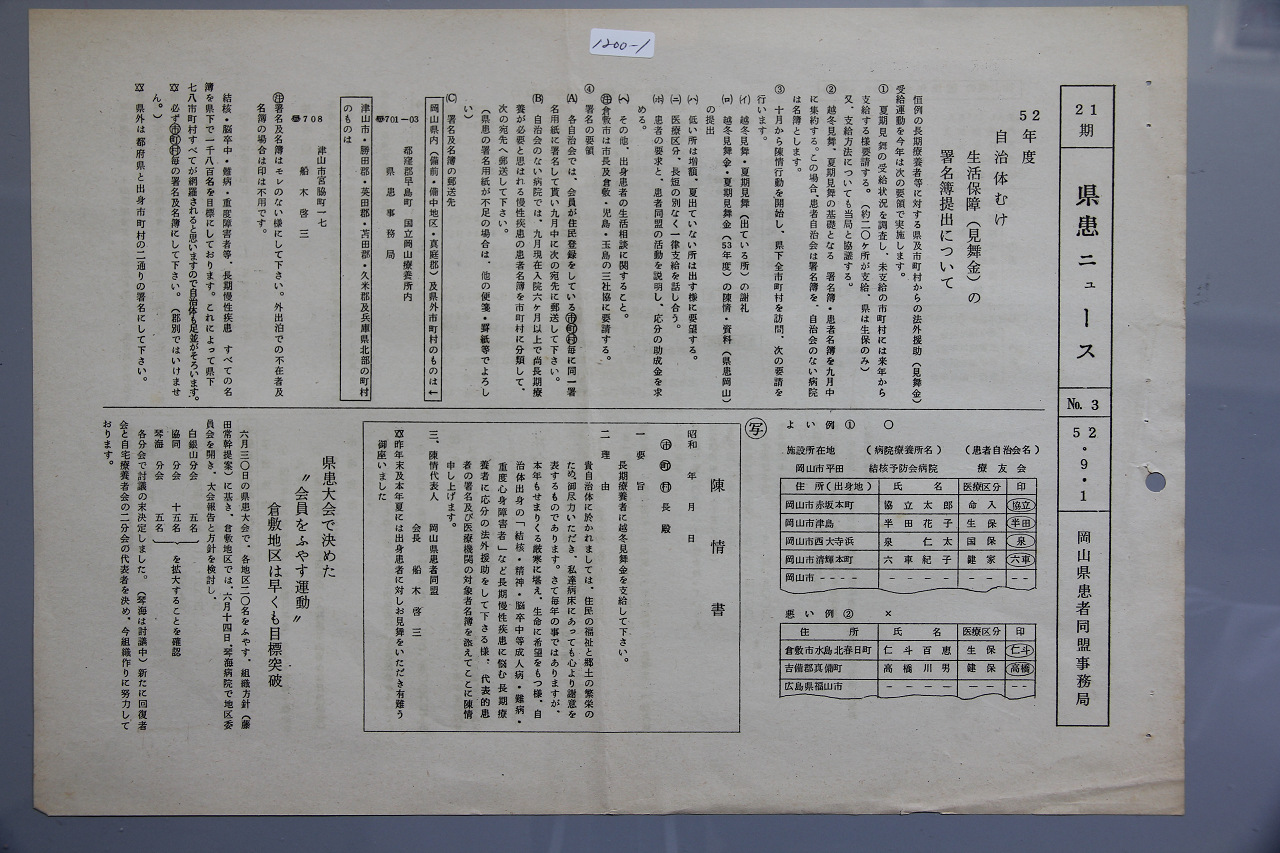 1200-1
21期
県患ニュース
No. 3
52・9・1
岡山県患者同盟事務局
52年度
自治体むけ
生活保障（見舞金）の
署名簿提出について
恒例の長期療養者等に対する県及市町村からの法外援助（見舞金）
受給運動を今年は次の要領で実施します。
① 夏期見舞の受給状況を調査し、未支給の市町村には来年から
支給する様要請する。（約二〇ヶ所が支給、県は生保のみ）
又、支給方法についても当局と協議する。
② 越冬見舞、夏期見舞の基礎となる 署名簿・患者名簿を九月中
に集約する。この場合、患者自治会は署名簿を、自治会のない病院
は名簿とします。
③ 十月から陳情行動を開始し、県下全市町村を訪問、次の要請を
行います。
(イ) 越冬見舞・夏期見舞（出ている所）の謝礼
(ロ) 越冬見舞金・夏期見舞金（53年度）の陳情・資料（県患岡山）
の提出
(ハ) 低い所は増額、夏出ていない所は出す様に要望する。
(ニ) 医療区分、長短の別なく一律支給を話し合う。
(ホ) 患者の要求と、患者同盟の活動を説明し、応分の助成金を求
める。
(ヘ) その他、出身患者の生活相談に関すること。
㊟倉敷市は市長及倉敷・児島・玉島の三社協に要請する。
④ 署名の要領
(A) 各自治会では、会員が住民登録をしている市町村毎に同一署
名用紙に署名して貰い九月中に次の宛先に郵送して下さい。
(B) 自治会のない病院では、九月現在入院六ヶ月以上で尚長期療
養が必要と思はれる慢性疾患の患者名簿を市町村に分類して、
次の宛先へ郵送して下さい。
（県患の署名用紙が不足の場合は、他の便箋・罫紙等でよろし
い）
(C) 署名及名簿の郵送先
岡山県内（備前・備中地区・真庭郡）及県外市町村のものは←
〒701-03
都窪郡早島町 国立岡山療養所内
県患事務局
津山市・勝田郡・英田郡・苫田郡・久米郡及兵庫県北部の町村
のものは
〒708
津山市宮脇町一七
船木啓三
㊟署名及名簿はモレのない様にして下さい。外出泊での不在者及
名簿の場合は印は不用です。
結核・脳卒中・難病・重度障害者等、長期慢性疾患 すべての名
簿を県下で一千八百名を目標にしております。これによって県下
七八市町村すべてが網羅されると思いますので自治体も足並がそろいます。
必ず市町村毎の署名及名簿にして下さい。（郡別ではいけませ
ん。）
県外は都府県と出身市町村の二通りの署名にして下さい。
よい例① ○
施設所在地 （病院療養所名） （患者自治会名）
岡山市平田 結核予防会病院 療友会
住所（出身地） 氏名 医療区分 印
岡山市赤坂本町 協立太郎 命入 協立
岡山市津島 半田花子 生保 半田
岡山市西大寺浜 泉仁太 国保 泉
岡山市清輝本町 六車紀子 健家 六車
岡山市----
悪い例② ×
住所 氏名 医療区分 印
倉敷市水島北春日町 仁斗百恵 生保 仁斗
吉備郡真備町 高橋川男 健保 高橋
広島県福山市 - - - - - - -
㊢
陳情書
昭和 年 月 日
市町村長殿
一 要旨
長期療養者に越冬見舞金を支給して下さい。
二 理由
貴自治体に於かれましては、住民の福祉と郷土の繁栄の
ため御尽力いただき、私達病床にあっても心より謝意を
表するものであります。さて毎年の事ではありますが、
本年もせまりくる厳寒に堪え、生命に希望をもつ様、自
治体出身の「結核・精神・脳卒中等成人病・難病・
重度心身障害者」など長期慢性疾患に悩む長期療
養者に応分の法外援助をして下さる様、代表的患
者の署名及び医療機関の対象者名簿を添えてここに陳情
申し上げます。
三、陳情代表人 岡山県患者同盟
会長 船木啓三
昨年末及び本年夏には出身患者に対しお見舞をいただき有難う
御座いました
県患大会で決めた
〝会員をふやす運動〟
倉敷地区は早くも目標突破
六月三〇日の県患大会で、各地区二〇名をふやす、組織方針（藤
田常幹提案）に基き、倉敷地区では、六月十四日・琴海病院で地区委
員会を開き、大会報告と方針を検討し、
白銀山分会 五名
協同 分会 十五名 を拡大することを確認
琴海 分会 五名
各分会で討議の末決定しました。（琴海は討議中）新たに回復者
会と自宅療養者会の二分会の代表者を決め、今組織作りに努力して
おります。